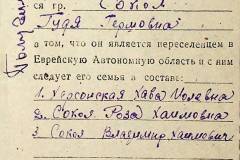 ся гр. Сокол
Гудя Герцовна
в том, что он является переселенцем в
Еврейскую Автономную область и с ним
следует его семья в составе:
1. Херсонская Хава
2. Сокол Роза Хаимовна
3. Сокол Владимир Хаимович